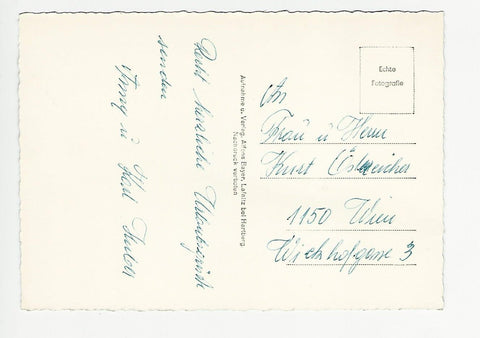 Recht herzliche Urlaubsgrüsse
senden
u. Karl
Aufnahme u. Verlag: Alfons Bayer, Lafnitz bei Hartberg
Nachdruck verboten
Echte
Fotografie
An
Frau u Herrn
Kurt Österreicher
1150 Wien
Wickhofgasse 3